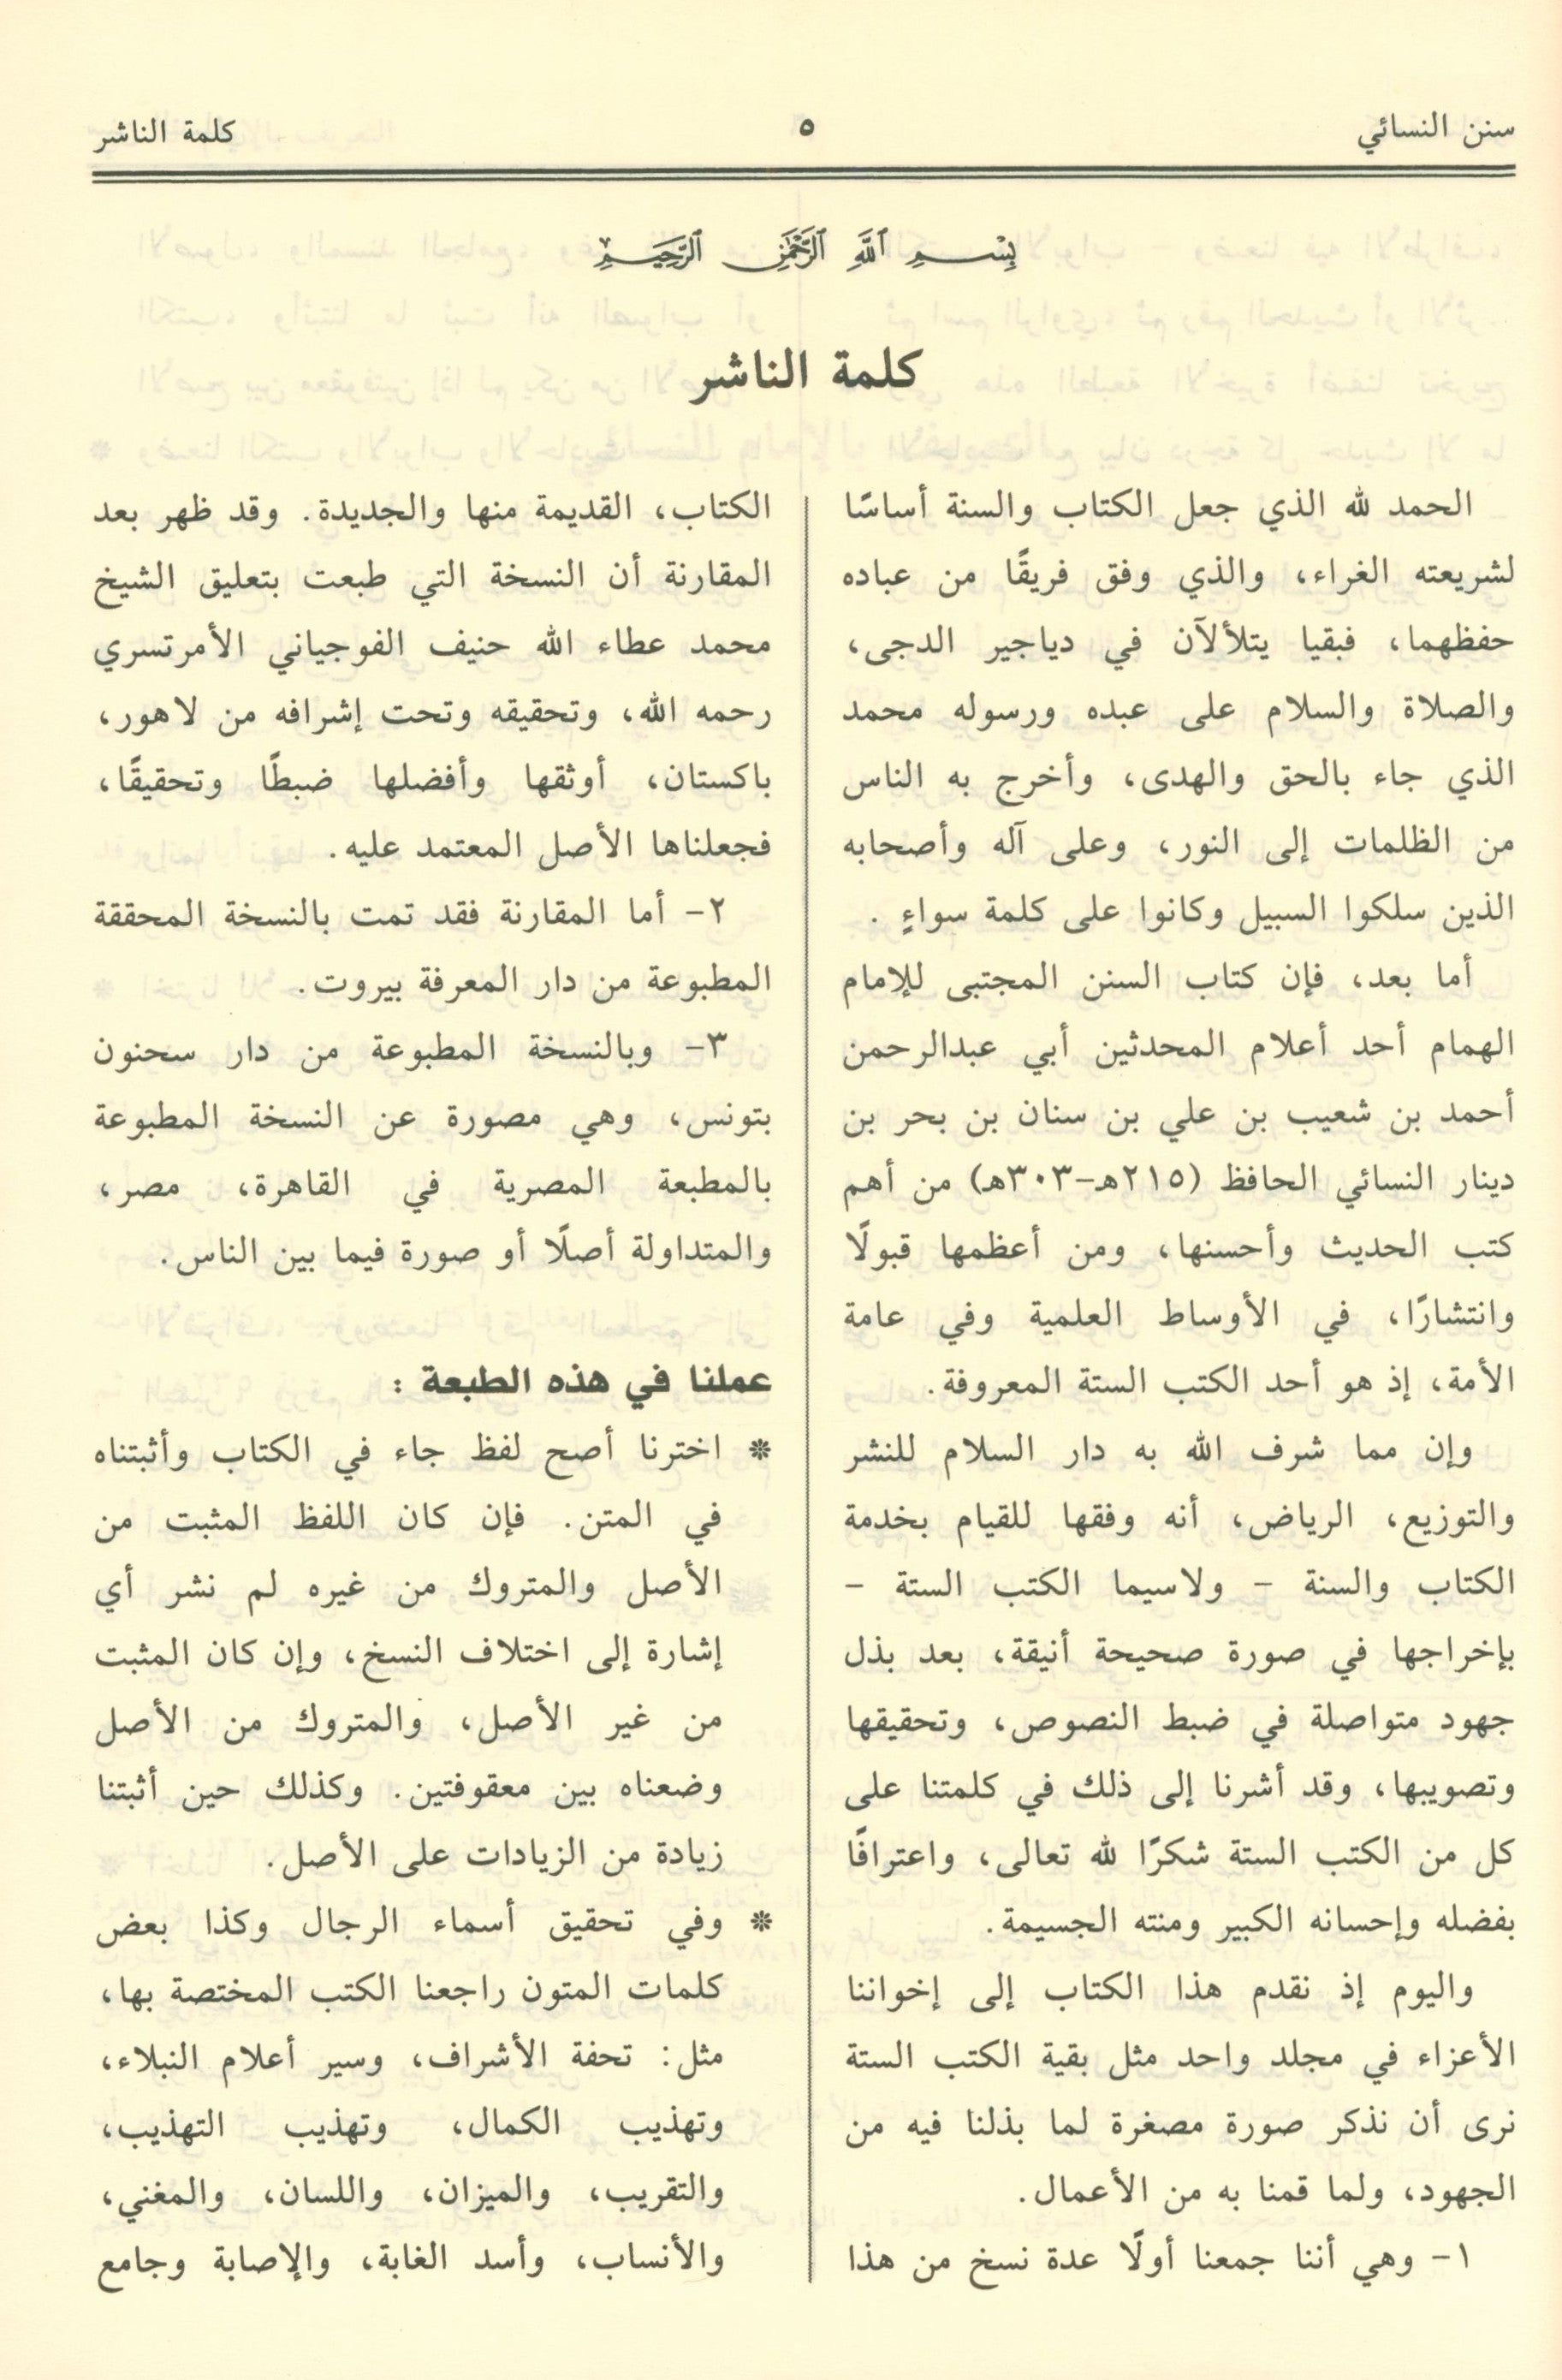 سنن النسائي
٥
كلمة الناشر
بِسْمِ ٱللَّهِ ٱلرَّحْمَٰنِ ٱلرَّحِيمِ
كلمة الناشر
الحمد لله الذي جعل الكتاب والسنة أساسًا
لشريعته الغراء، والذي وفق فريقًا من عباده
حفظهما، فبقيا يتلألآن في دياجير الدجى،
والصلاة والسلام على عبده ورسوله محمد
الذي جاء بالحق والهدى، وأخرج به الناس
من الظلمات إلى النور، وعلى آله وأصحابه
الذين سلكوا السبيل وكانوا على كلمة سواءٍ .
أما بعد، فإن كتاب السنن المجتبى للإمام
الهمام أحد أعلام المحدثين أبي عبدالرحمن
أحمد بن شعيب بن علي بن سنان بن بحر بن
دينار النسائي الحافظ (٢١٥هـ-٣٠٣هـ) من أهم
كتب الحديث وأحسنها، ومن أعظمها قبولًا
وانتشارًا، في الأوساط العلمية وفي عامة
الأمة، إذ هو أحد الكتب الستة المعروفة.
وإن مما شرف الله به دار السلام للنشر
والتوزيع، الرياض، أنه وفقها للقيام بخدمة
الكتاب والسنة - ولاسيما الكتب الستة -
بإخراجها في صورة صحيحة أنيقة، بعد بذل
جهود متواصلة في ضبط النصوص، وتحقيقها
وتصويبها، وقد أشرنا إلى ذلك في كلمتنا على
كل من الكتب الستة شكرًا لله تعالى، واعترافًا
بفضله وإحسانه الكبير ومنته الجسيمة.
واليوم إذ نقدم هذا الكتاب إلى إخواننا
الأعزاء في مجلد واحد مثل بقية الكتب الستة
نرى أن نذكر صورة مصغرة لما بذلنا فيه من
الجهود، ولما قمنا به من الأعمال.
١- وهي أننا جمعنا أولًا عدة نسخ من هذا
الكتاب، القديمة منها والجديدة. وقد ظهر بعد
المقارنة أن النسخة التي طبعت بتعليق الشيخ
محمد عطاء الله حنيف الفوجياني الأمرتسري
رحمه الله، وتحقيقه وتحت إشرافه من لاهور،
باكستان، أوثقها وأفضلها ضبطًا وتحقيقًا،
فجعلناها الأصل المعتمد عليه.
٢- أما المقارنة فقد تمت بالنسخة المحققة
المطبوعة من دار المعرفة بيروت.
٣- وبالنسخة المطبوعة من دار سحنون
بتونس، وهي مصورة عن النسخة المطبوعة
بالمطبعة المصرية في القاهرة، مصر،
والمتداولة أصلًا أو صورة فيما بين الناس.
عملنا في هذه الطبعة :
* اخترنا أصح لفظ جاء في الكتاب وأثبتناه
في المتن. فإن كان اللفظ المثبت من
الأصل والمتروك من غيره لم نشر أي
إشارة إلى اختلاف النسخ، وإن كان المثبت
من غير الأصل، والمتروك من الأصل
وضعناه بين معقوفتين. وكذلك حين أثبتنا
زيادة من الزيادات على الأصل.
* وفي تحقيق أسماء الرجال وكذا بعض
كلمات المتون راجعنا الكتب المختصة بها،
مثل: تحفة الأشراف، وسير أعلام النبلاء،
وتهذيب الكمال، وتهذيب التهذيب،
والتقريب، والميزان، واللسان، والمغني،
والأنساب، وأسد الغابة، والإصابة وجامع